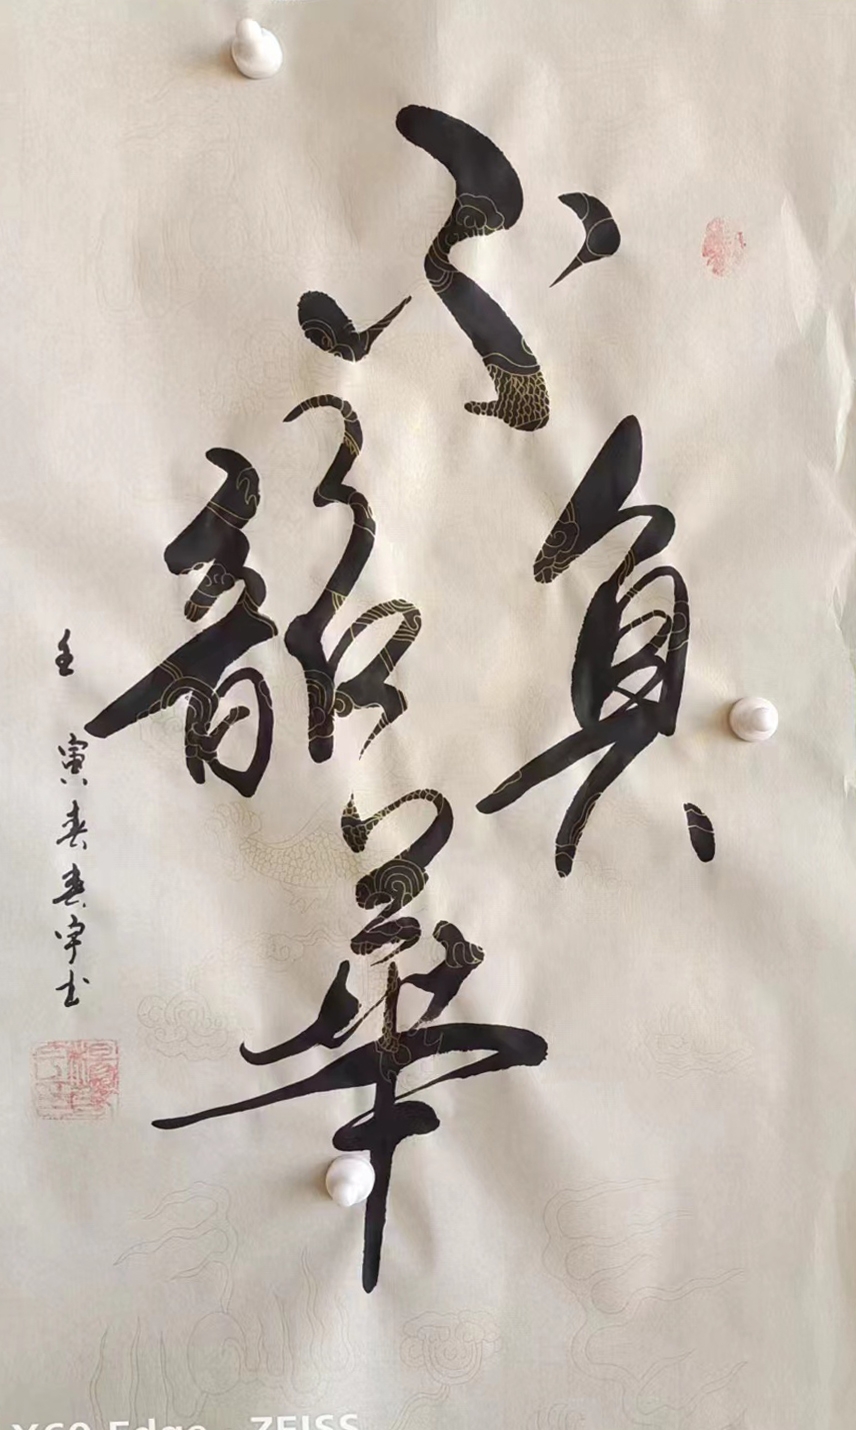 不负
韶華
壬寅春春宇书
X60 Edge ZEISS